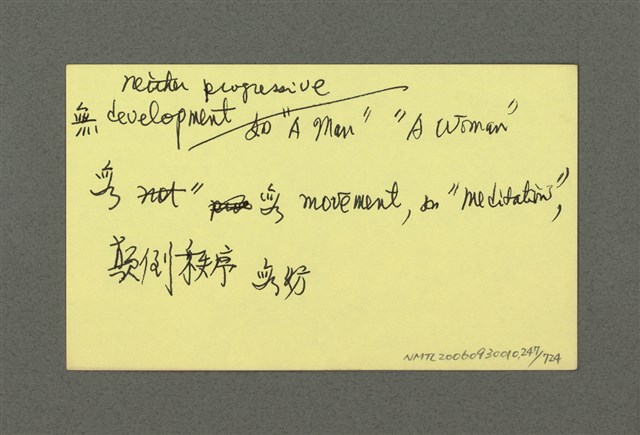 neither progressive
無 development 如 "A Man" "A Woman"
無 not" 無 movement, 如 "meditation",
顛倒秩序 無妨
NMTL20060930010.247/724